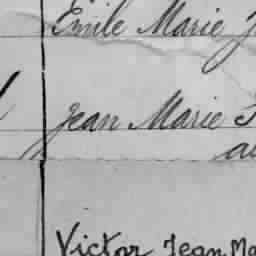 Emile Marie
Jean Marie
Victor Jean Ma